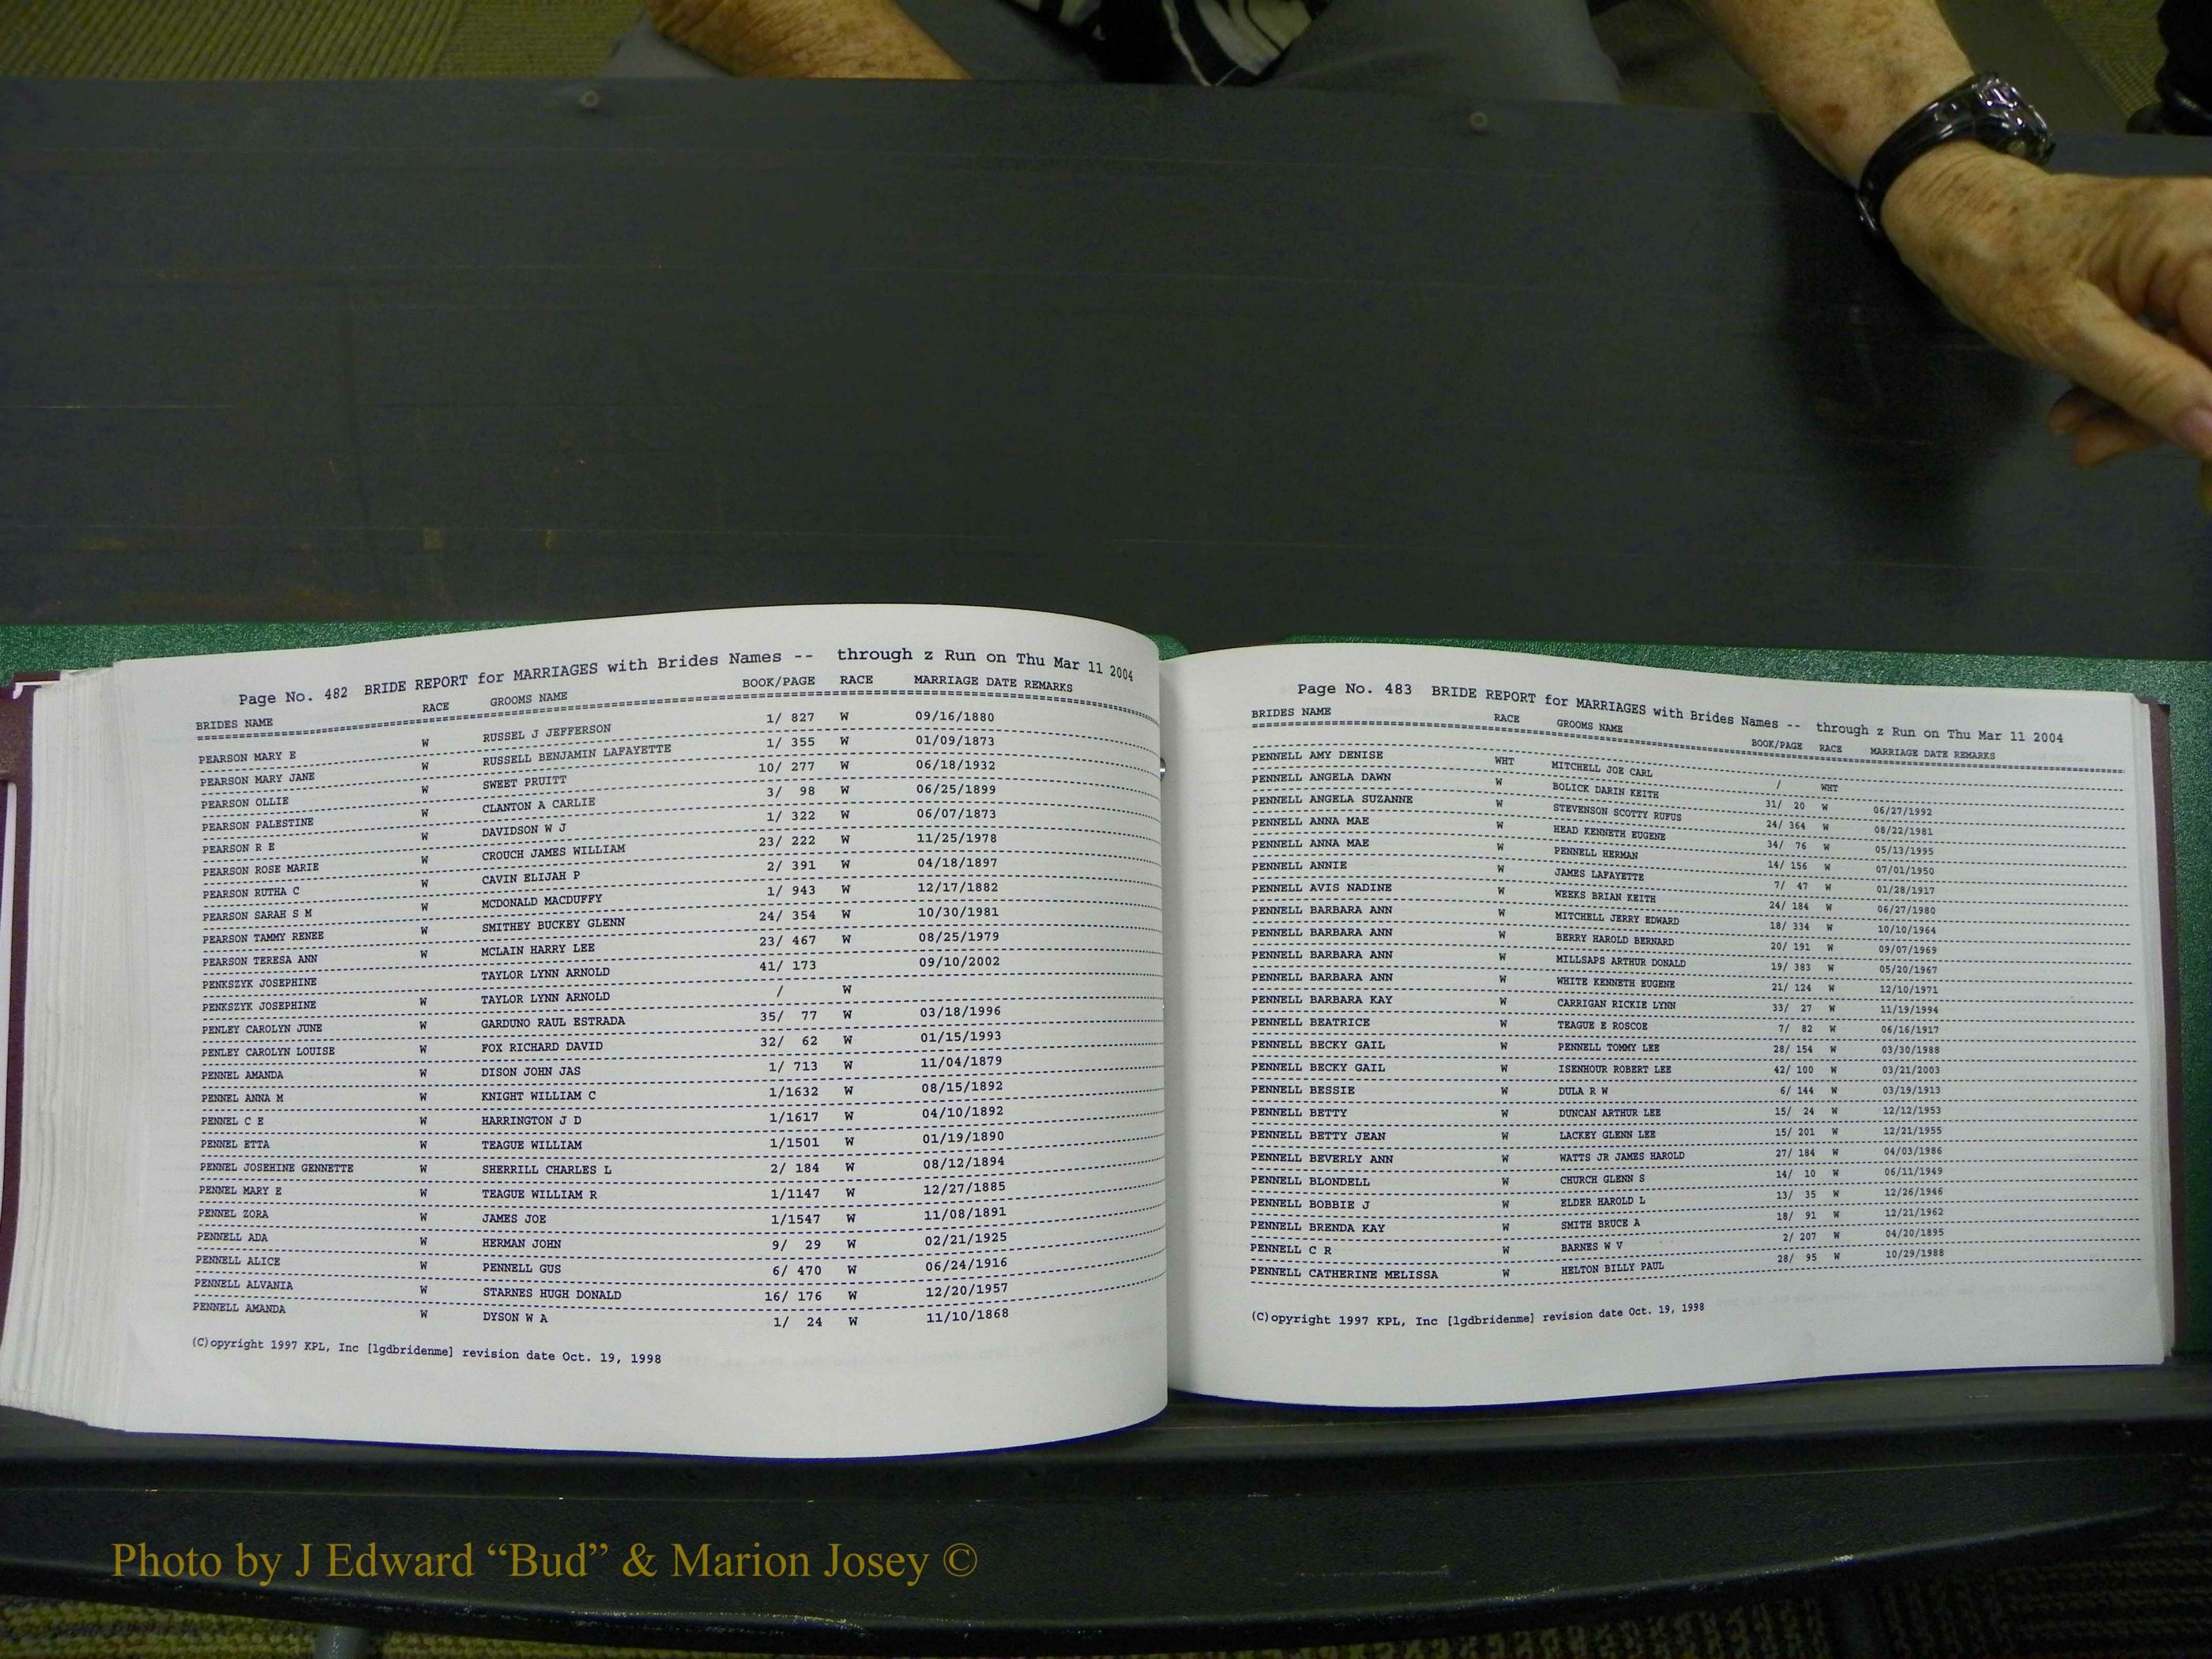 Page No. 482 BRIDE REPORT for MARRIAGES with Brides Names -- through z Run on Thu Mar 11 2004
BRIDES NAME RACE GROOMS NAME BOOK/PAGE RACE MARRIAGE DATE REMARKS
PEARSON MARY E W RUSSEL J JEFFERSON 1/ 827 W 09/16/1880
PEARSON MARY JANE W RUSSELL BENJAMIN LAFAYETTE 1/ 355 W 01/09/1873
PEARSON OLLIE W SWEET PRUITT 10/ 277 W 06/18/1932
PEARSON PALESTINE W CLANTON A CARLIE 3/ 98 W 06/25/1899
PEARSON R E W DAVIDSON W J 1/ 322 W 06/07/1873
PEARSON ROSE MARIE W CROUCH JAMES WILLIAM 23/ 222 W 11/25/1978
PEARSON RUTHA C W CAVIN ELIJAH P 2/ 391 W 04/18/1897
PEARSON SARAH S M W MCDONALD MACDUFFY 1/ 943 W 12/17/1882
PEARSON TAMMY RENEE W SMITHEY BUCKEY GLENN 24/ 354 W 10/30/1981
PEARSON TERESA ANN W MCLAIN HARRY LEE 23/ 467 W 08/25/1979
PENKSZYK JOSEPHINE TAYLOR LYNN ARNOLD 41/ 173 09/10/2002
PENKSZYK JOSEPHINE W TAYLOR LYNN ARNOLD / W
PENLEY CAROLYN JUNE W GARDUNO RAUL ESTRADA 35/ 77 W 03/18/1996
PENLEY CAROLYN LOUISE W FOX RICHARD DAVID 32/ 62 W 01/15/1993
PENNEL AMANDA W DISON JOHN JAS 1/ 713 W 11/04/1879
PENNEL ANNA M W KNIGHT WILLIAM C 1/1632 W 08/15/1892
PENNEL C E W HARRINGTON J D 1/1617 W 04/10/1892
PENNEL ETTA W TEAGUE WILLIAM 1/1501 W 01/19/1890
PENNEL JOSEHINE GENNETTE W SHERRILL CHARLES L 2/ 184 W 08/12/1894
PENNEL MARY E W TEAGUE WILLIAM R 1/1147 W 12/27/1885
PENNEL ZORA W JAMES JOE 1/1547 W 11/08/1891
PENNELL ADA W HERMAN JOHN 9/ 29 W 02/21/1925
PENNELL ALICE W PENNELL GUS 6/ 470 W 06/24/1916
PENNELL ALVANIA W STARNES HUGH DONALD 16/ 176 W 12/20/1957
PENNELL AMANDA W DYSON W A 1/ 24 W 11/10/1868
(C)opyright 1997 KPL, Inc [lgdbridenme] revision date Oct. 19, 1998
Page No. 483 BRIDE REPORT for MARRIAGES with Brides Names -- through z Run on Thu Mar 11 2004
BRIDES NAME RACE GROOMS NAME BOOK/PAGE RACE MARRIAGE DATE REMARKS
PENNELL AMY DENISE WHT MITCHELL JOE CARL / WHT
PENNELL ANGELA DAWN W BOLICK DARIN KEITH 31/ 20 W 06/27/1992
PENNELL ANGELA SUZANNE W STEVENSON SCOTTY RUFUS 24/ 364 W 08/22/1981
PENNELL ANNA MAE W HEAD KENNETH EUGENE 34/ 76 W 05/13/1995
PENNELL ANNA MAE W PENNELL HERMAN 14/ 156 W 07/01/1950
PENNELL ANNIE W JAMES LAFAYETTE 7/ 47 W 01/28/1917
PENNELL AVIS NADINE W WEEKS BRIAN KEITH 24/ 184 W 06/27/1980
PENNELL BARBARA ANN W MITCHELL JERRY EDWARD 18/ 334 W 10/10/1964
PENNELL BARBARA ANN W BERRY HAROLD BERNARD 20/ 191 W 09/07/1969
PENNELL BARBARA ANN W MILLSAPS ARTHUR DONALD 19/ 383 W 05/20/1967
PENNELL BARBARA ANN W WHITE KENNETH EUGENE 21/ 124 W 12/10/1971
PENNELL BARBARA KAY W CARRIGAN RICKIE LYNN 33/ 27 W 11/19/1994
PENNELL BEATRICE W TEAGUE E ROSCOE 7/ 82 W 06/16/1917
PENNELL BECKY GAIL W PENNELL TOMMY LEE 28/ 154 W 03/30/1988
PENNELL BECKY GAIL W ISENHOUR ROBERT LEE 42/ 100 W 03/21/2003
PENNELL BESSIE W DULA R W 6/ 144 W 03/19/1913
PENNELL BETTY W DUNCAN ARTHUR LEE 15/ 24 W 12/12/1953
PENNELL BETTY JEAN W LACKEY GLENN LEE 15/ 201 W 12/21/1955
PENNELL BEVERLY ANN W WATTS JR JAMES HAROLD 27/ 184 W 04/03/1986
PENNELL BLONDELL W CHURCH GLENN S 14/ 10 W 06/11/1949
PENNELL BOBBIE J W ELDER HAROLD L 13/ 35 W 12/26/1946
PENNELL BRENDA KAY W SMITH BRUCE A 18/ 91 W 12/21/1962
PENNELL C R W BARNES W V 2/ 207 W 04/20/1895
PENNELL CATHERINE MELISSA W HELTON BILLY PAUL 28/ 95 W 10/29/1988
(C)opyright 1997 KPL, Inc [lgdbridenme] revision date Oct. 19, 1998
Photo by J Edward “Bud” & Marion Josey ©